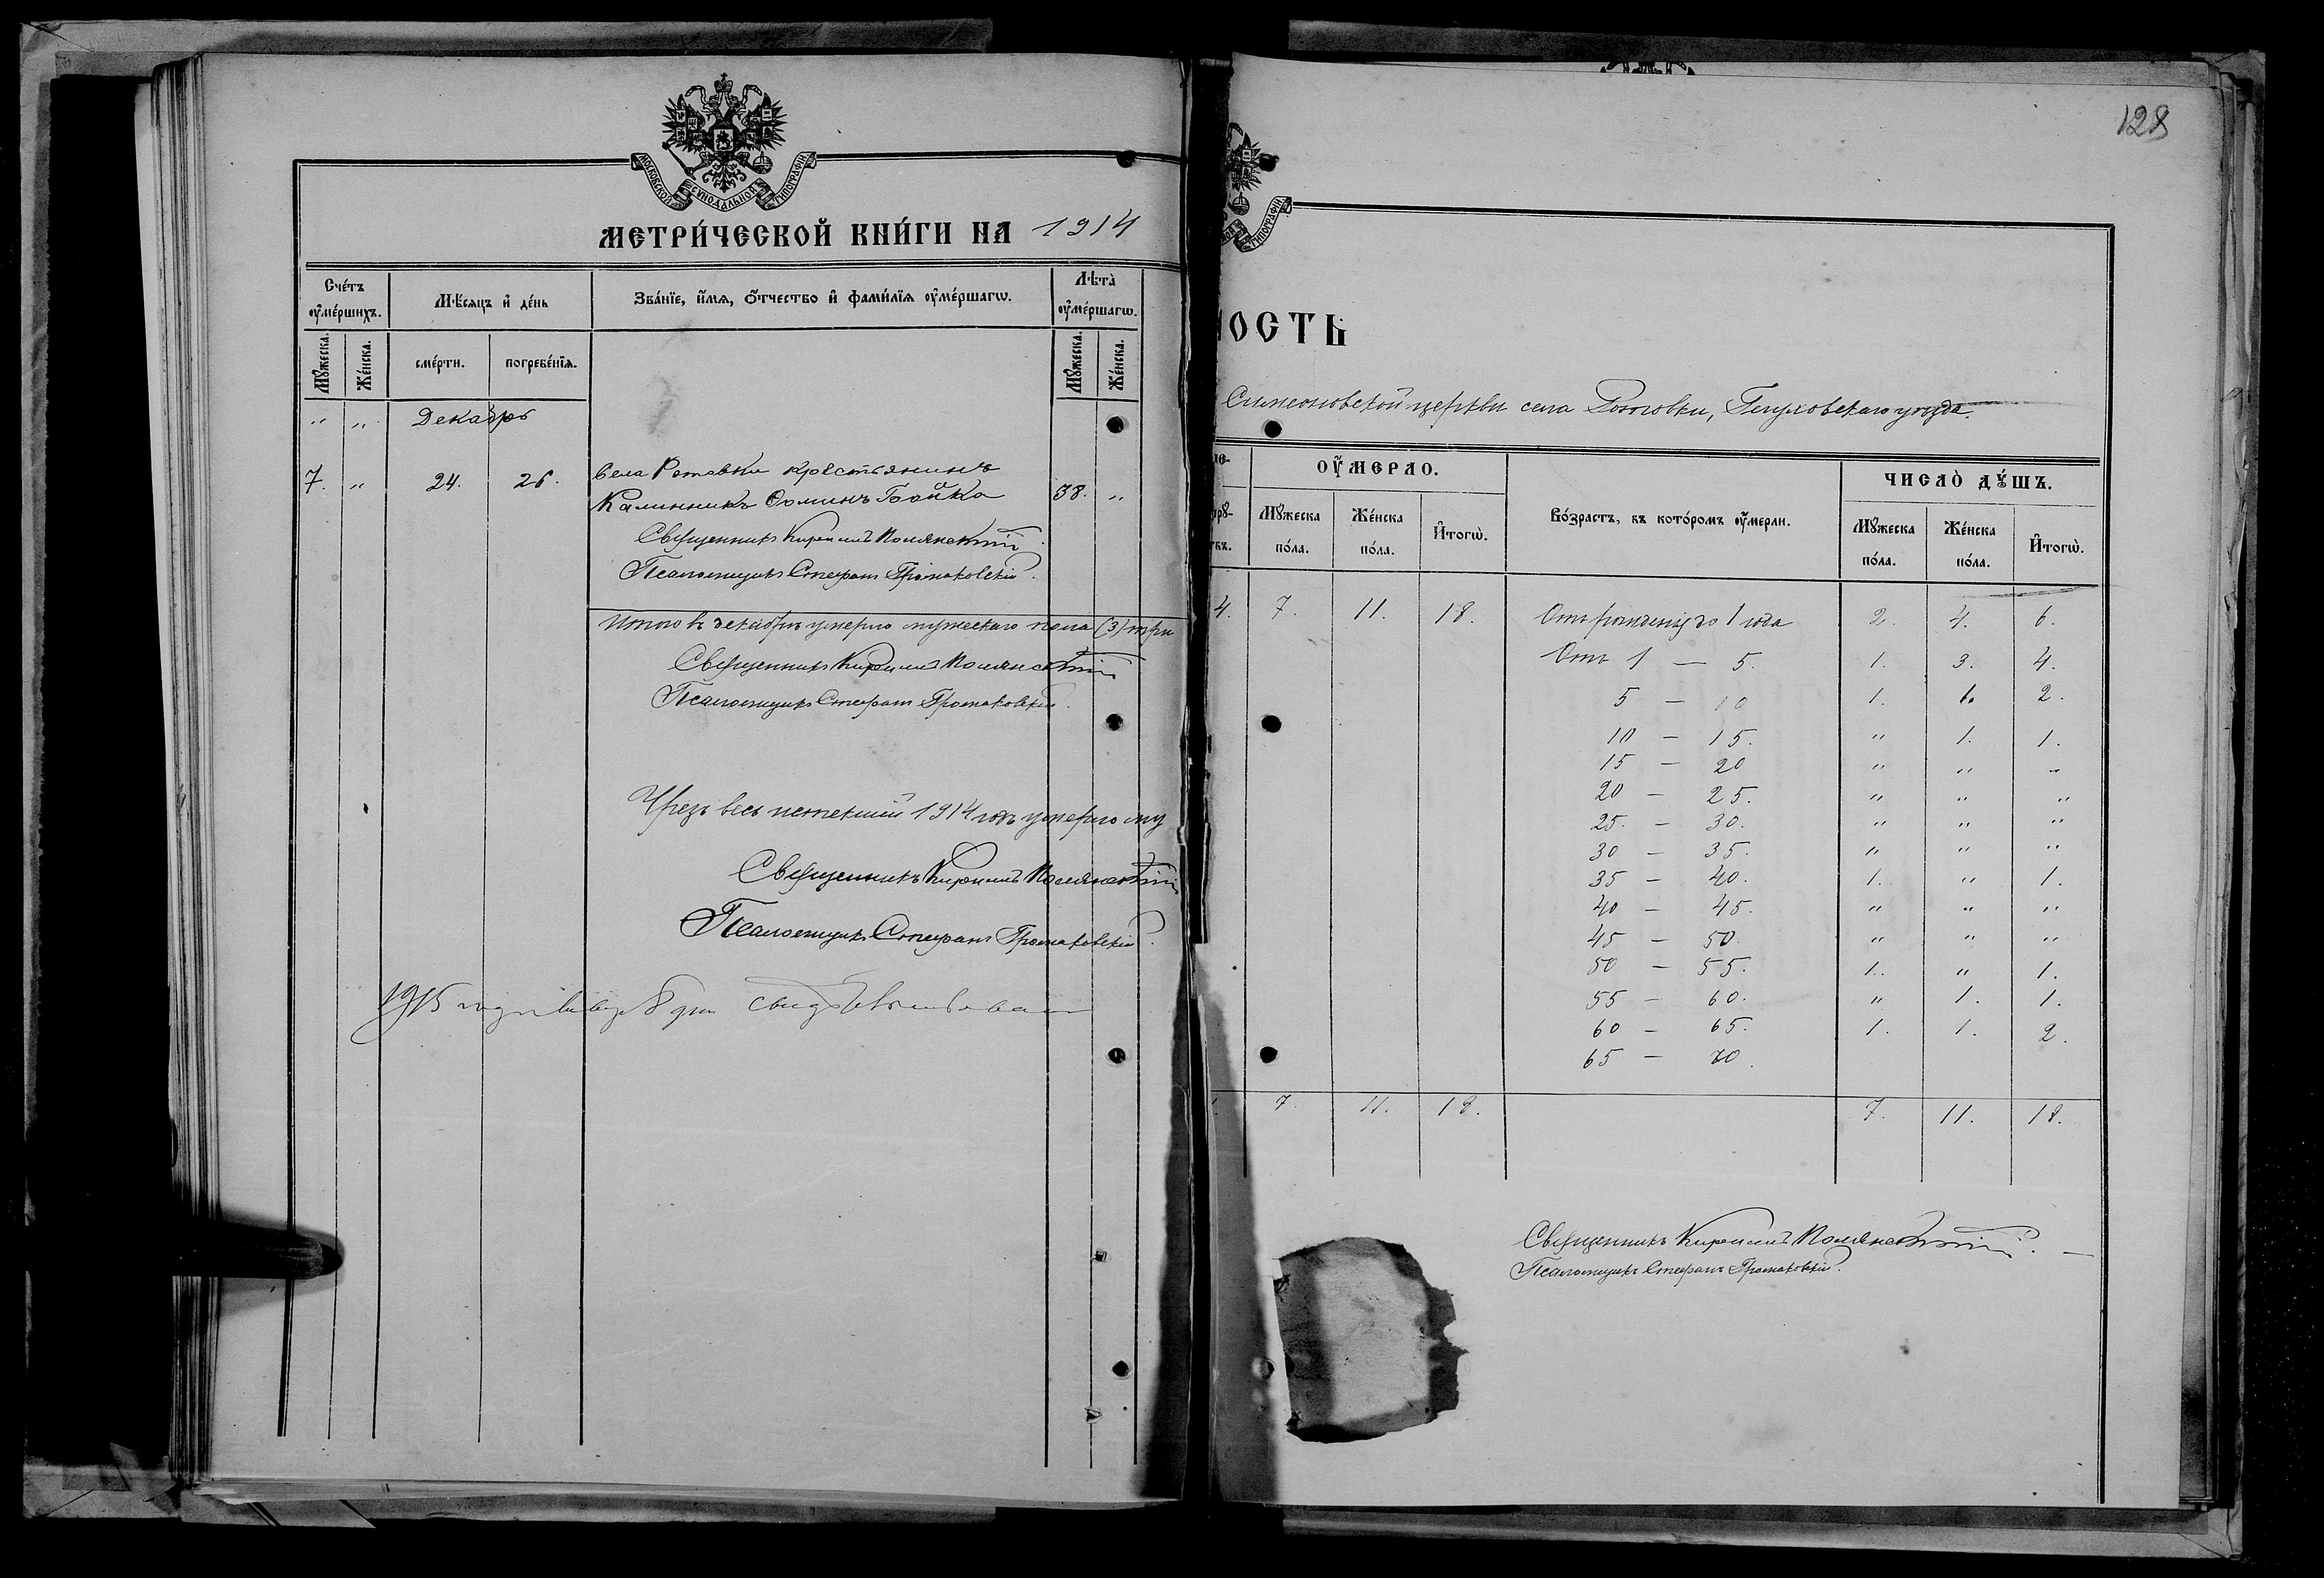 МОСКОВСКОЙ СѴНОДАЛЬНОЙ ТИПОГРАФІИ
МЕТРИ́ЧЕСКОЙ КНИ́ГИ НА 1914
Сче́тъ ᲂу҆ме́ршихъ.
Мѣ́сяцъ и҆ де́нь
Зва́нїе, и҆́мя, ѻ҆́тчество и҆ фами́лїя ᲂу҆ме́ршагѡ.
Лѣ́та ᲂу҆ме́ршагѡ.
Мꙋ́жеска. Же́нска. сме́рти. погребе́нїя. Мꙋ́жеска. Же́нска.
„ „ Декабрь
7. „ 24. 26. Села Ротовки крестьянинъ
Калинникъ Ѳоминъ Бойко 38. „
Священникъ Кириллъ Полянскій
Псаломщикъ Стефанъ Громаковскій.
Итого въ декабрѣ умерло мужескаго пола (3) три
Священникъ Кириллъ Полянскій
Псаломщикъ Стефанъ Громаковскій.
Чрезъ весь истекшій 1914 годъ умерло му
Священникъ Кириллъ Полянскій
Псаломщикъ Стефанъ Громаковскій.
1915 года января 8 дня свидѣтельствовалъ
128
ТИПОГРАФІИ
ОСТЬ
Симеоновской церкви села Ротовки, Глуховскаго уѣзда.
ᲂУ҆МЕРЛО.
Во́зрастъ, въ кото́ромъ ᲂу҆́мерли.
ЧИСЛО̀ ДꙊ́ШЪ.
Мꙋ́жеска по́ла. Же́нска по́ла. И҆тогѡ̀.
Мꙋ́жеска по́ла. Же́нска по́ла. И҆тогѡ̀.
4. 7. 11. 18. Отъ рожденія до 1 года 2. 4. 6.
Отъ 1 — 5. 1. 3. 4.
5 — 10 1. 1. 2.
10 — 15. „ 1. 1.
15 — 20 „ „ „
20 — 25. „ „ „
25. — 30. „ „ „
30 — 35. „ „ „
35 — 40. 1. „ 1.
40 — 45. „ „ „
45 — 50. „ „ „
50 — 55. 1. „ 1.
55 — 60. „ 1. 1.
60 — 65. 1. 1. 2.
65 — 70.
7. 11. 18. 7. 11. 18.
Священникъ Кириллъ Полянскій. —
Псаломщикъ Стефанъ Громаковскій.